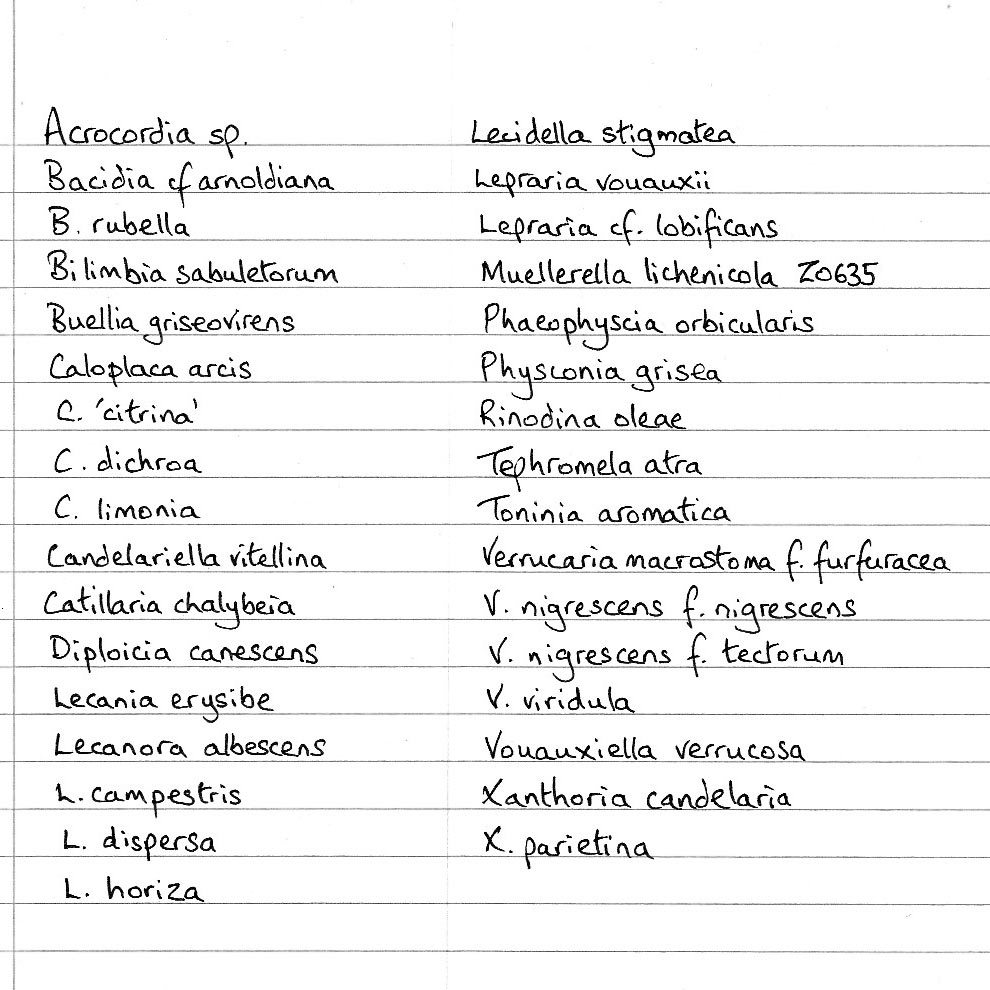 Acrocordia sp.
Bacidia cf arnoldiana
B. rubella
Bilimbia sabuletorum
Buellia griseovirens
Caloplaca arcis
C. 'citrina'
C. dichroa
C. limonia
Candelariella vitellina
Catillaria chalybeia
Diploicia canescens
Lecania erysibe
Lecanora albescens
L. campestris
L. dispersa
L. horiza
Lecidella stigmatea
Lepraria vouauxii
Lepraria cf. lobificans
Muellerella lichenicola Z0635
Phaeophyscia orbicularis
Physconia grisea
Rinodina oleae
Tephromela atra
Toninia aromatica
Verrucaria macrostoma f. furfuracea
V. nigrescens f. nigrescens
V. nigrescens f. tectorum
V. viridula
Vouauxiella verrucosa
Xanthoria candelaria
X. parietina